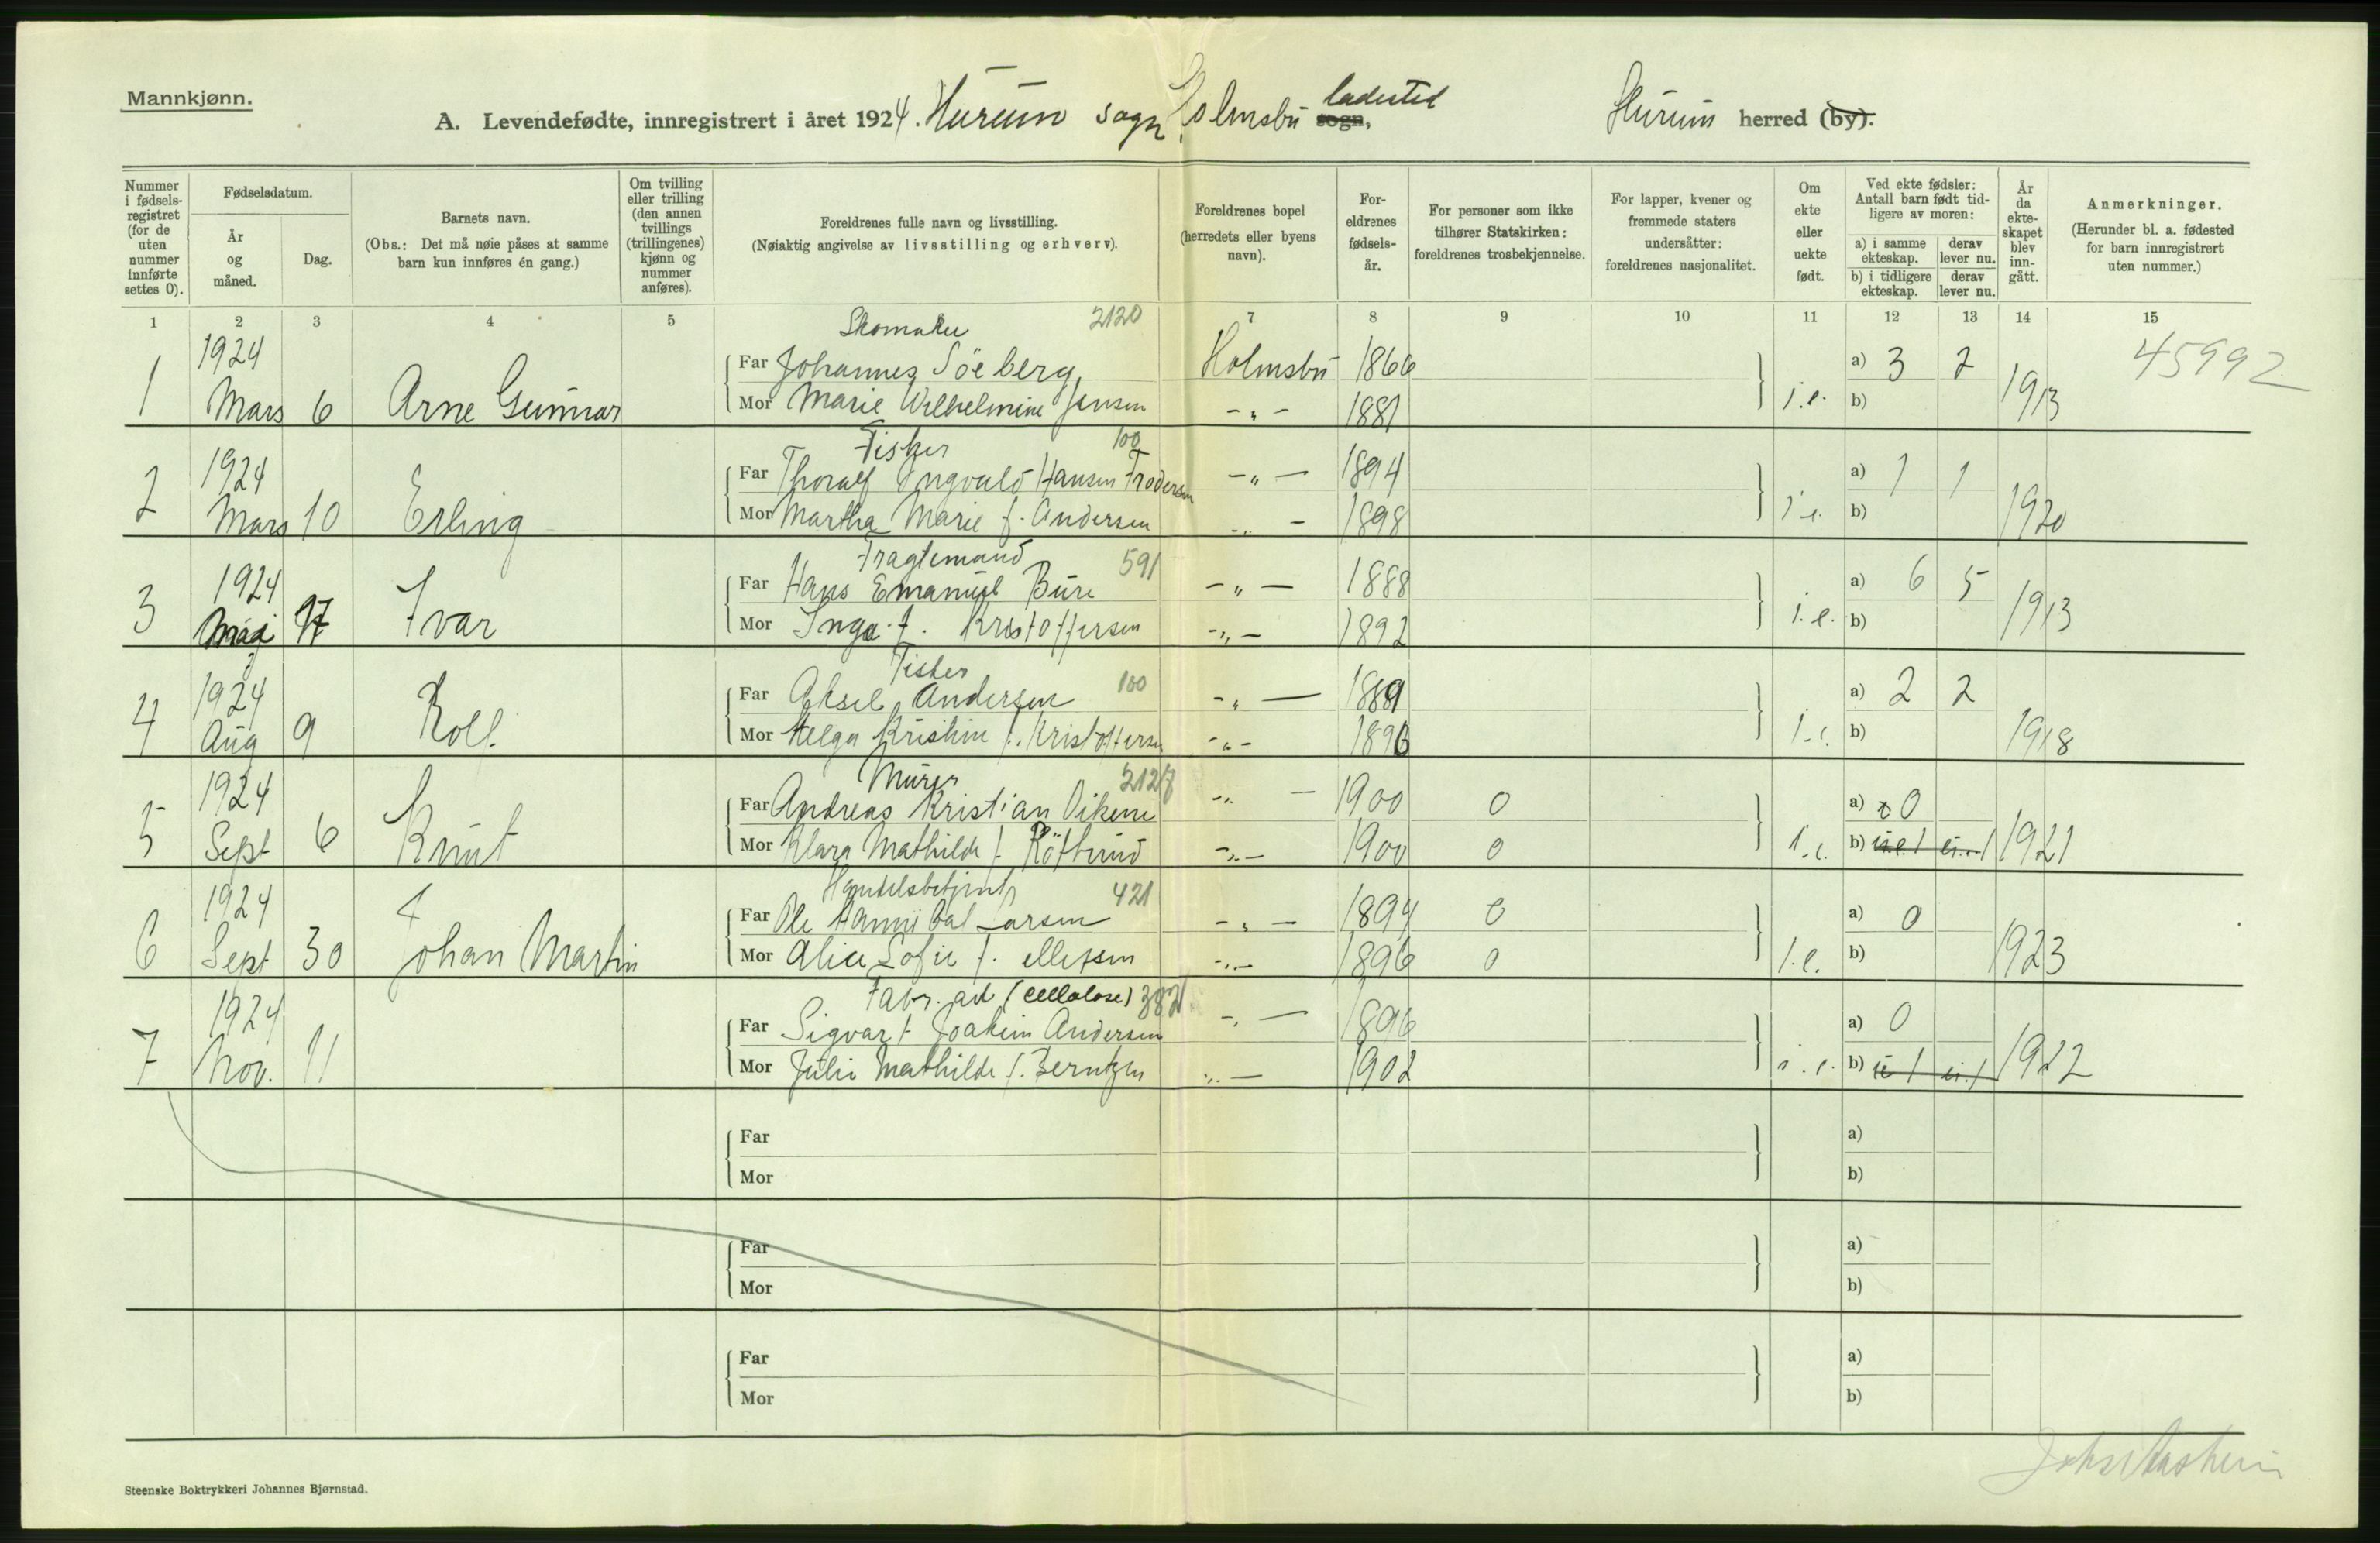 Mannkjønn.
A. Levendefødte, innregistrert i året 1924. Hurum sogn, Holmsbu ladested sogn, Hurum herred (by).
Nummer i fødselsregistret (for de uten nummer innførte settes 0).
Fødselsdatum.
År og måned.
Dag.
Barnets navn.
(Obs.: Det må nøie påses at samme barn kun innføres én gang.)
Om tvilling eller trilling (den annen tvillings (trillingenes) kjønn og nummer anføres).
Foreldrenes fulle navn og livsstilling.
(Nøiaktig angivelse av livsstilling og erhverv).
Foreldrenes bopel (herredets eller byens navn).
Foreldrenes fødselsår.
For personer som ikke tilhører Statskirken: foreldrenes trosbekjennelse.
For lapper, kvener og fremmede staters undersåtter: foreldrenes nasjonalitet.
Om ekte eller uekte født.
Ved ekte fødsler: Antall barn født tidligere av moren:
a) i samme ekteskap. derav lever nu.
b) i tidligere ekteskap. derav lever nu.
År da ekteskapet blev inngått.
Anmerkninger.
(Herunder bl. a. fødested for barn innregistrert uten nummer.)
1 2 3 4 5 7 8 9 10 11 12 13 14 15
Skomaker 2120
45992
1 1924 Mars 6 Arne Gunnar
Far Johannes Söeberg Holmsbu 1866 a) 3 2
Mor Marie Wilhelmine Jensen -"- 1881 i.e. b) 1913
Fisker 100
2 1924 Mars 10 Erling
Far Thoralf Ingvald Hansen -"- 1894 a) 1 1
Mor Martha Marie f. Andersen -"- 1898 i.e. b) 1920
Fragtemand 591
3 1924 Mai 17 Ivar
Far Hans Emanuel Bure -"- 1888 a) 6 5
Mor Inga f. Kristoffersen -"- 1892 i.e. b) 1913
Fisker 100
4 1924 Aug 9 Rolf.
Far Aksel Andersen -"- 1889 a) 2 2
Mor Helga Kristine f. Kristoffersen -"- 1896 i.e. b) 1918
Murer 2127
5 1924 Sept 6 Knut
Far Andreas Kristian -"- 1900 0 a) 0
Mor Klara Mathilde f. -"- 1900 0 i.e. b) 1921
Handelsbetjent 421
6 1924 Sept 30 Johan Martin
Far Ole Hannibal Larsen -"- 1894 0 a) 0
Mor Alice Sofie f. Ellefsen -"- 1896 0 i.e. b) 1923
Fabr. arb (cellulose) 382
7 1924 Nov. 11
Far Sigvart Joakim Andersen -"- 1896 a) 0
Mor Julie Mathilde f. Berntzen -"- 1902 i.e. b) 1922
Far a)
Mor b)
Far a)
Mor b)
Far a)
Mor b)
Steenske Boktrykkeri Johannes Bjørnstad.